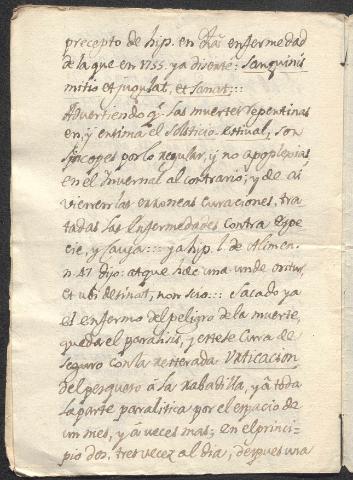 precepto de hip. en dħa enfermedad
de la que en 1755. ya disente: Sanguinis
mitio et jugulat, et Sanat:::
Advertiendo q.e las muertes repentinas
en, y entima el Solsticio estival, son
Sincopes por lo regular, y no apoplexias,
en el Invernal al contrario; y de ai
vienen las erroneas curaciones, tra
tadas las Enfermedades contra Espe
cie, y Causa::: ya hip. l. de Alimen.
n. 47 dijo: at que hæc una unde oritur,
et ubi detinat, non scio::: Sacado ya
el enfermo del peligro de la muerte,
queda el paralisis, y este se Cura de
Seguro con la reiterada Vaticacion
del pesquero á la rabadilla, y á toda
la parte paralitica por el espacio de
un mes, y á veces mas; en el princi-
pio dos, tres vecez al dia; despues una